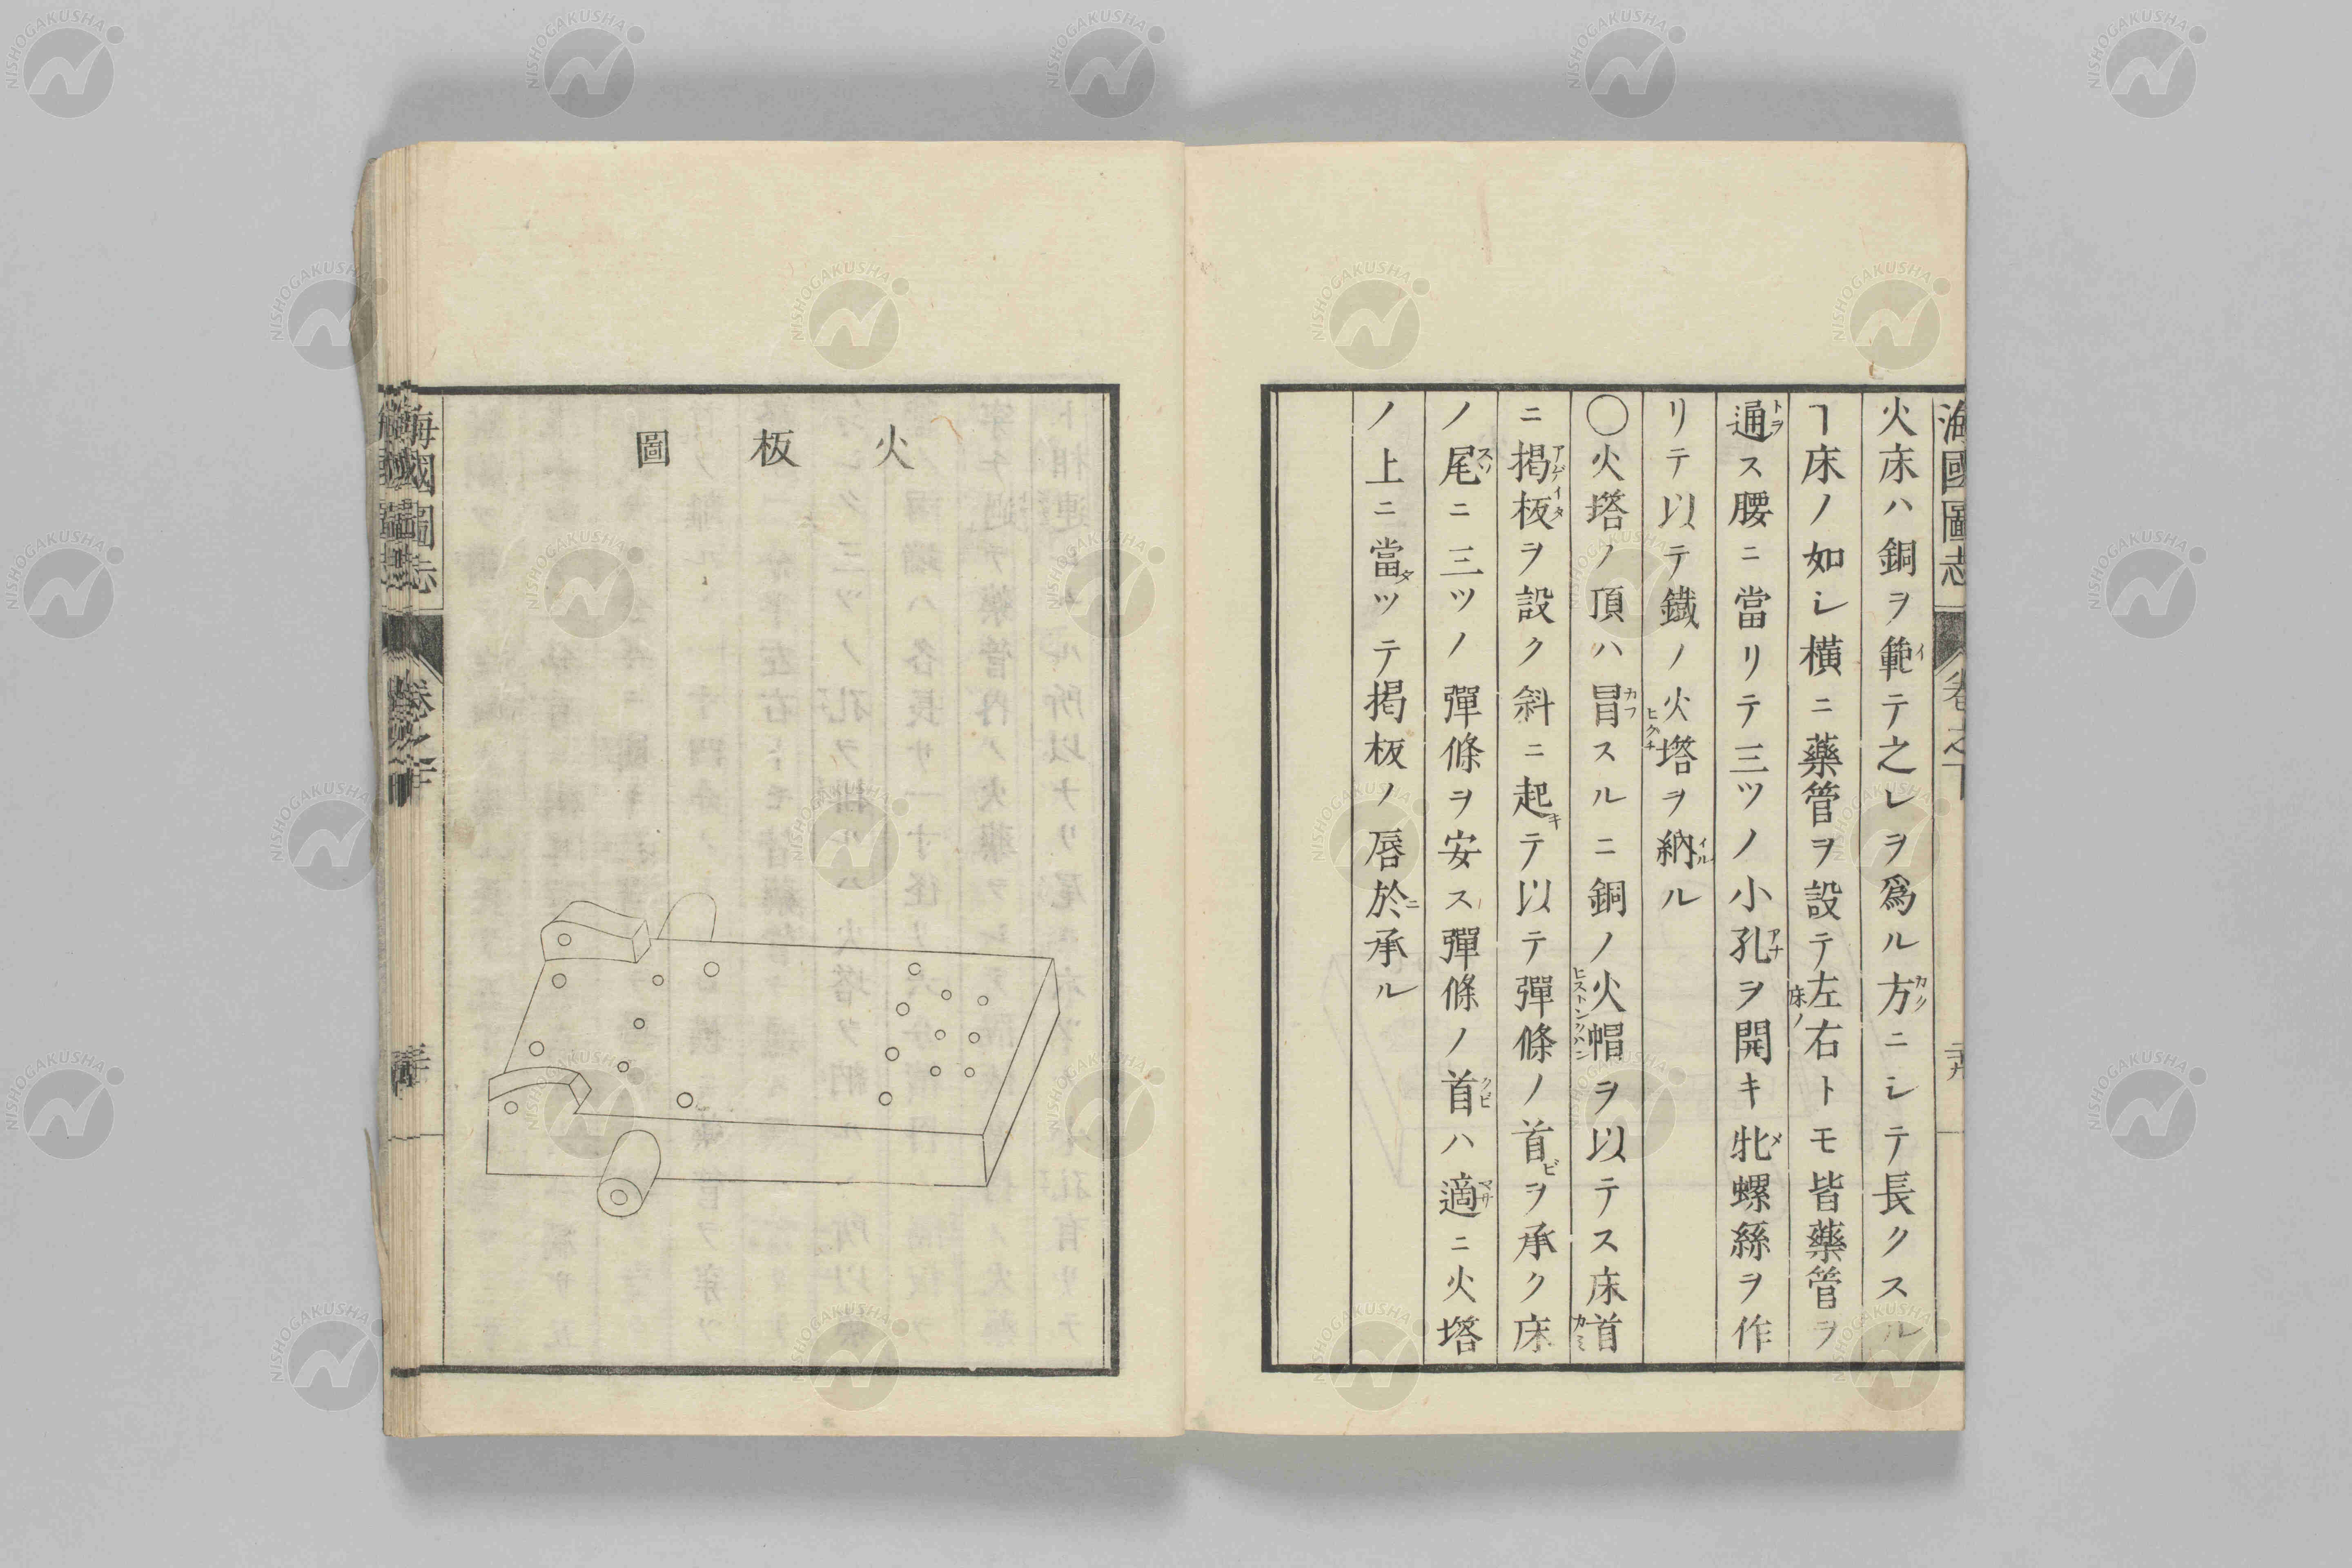 海國圖志 卷之下
火床ハ銅ヲ範テ之レヲ爲ル方ニシテ長クスル
ヿ床ノ如シ横ニ藥管ヲ設テ左右トモ皆藥管ヲ
通ス腰ニ當リテ三ツノ小孔ヲ開キ牝螺絲ヲ作
リテ以テ鐵ノ火塔ヲ納ル
〇火塔ノ頂ハ冒スルニ銅ノ火帽ヲ以テス床首
ニ掲板ヲ設ク斜ニ起テ以テ彈條ノ首ヲ承ク床
ノ尾ニ三ツノ彈條ヲ安ス彈條ノ首ハ適ニ火塔
ノ上ニ當ツテ掲板ノ唇於承ル
火板圖
海國圖志
NISHOGAKUSHA